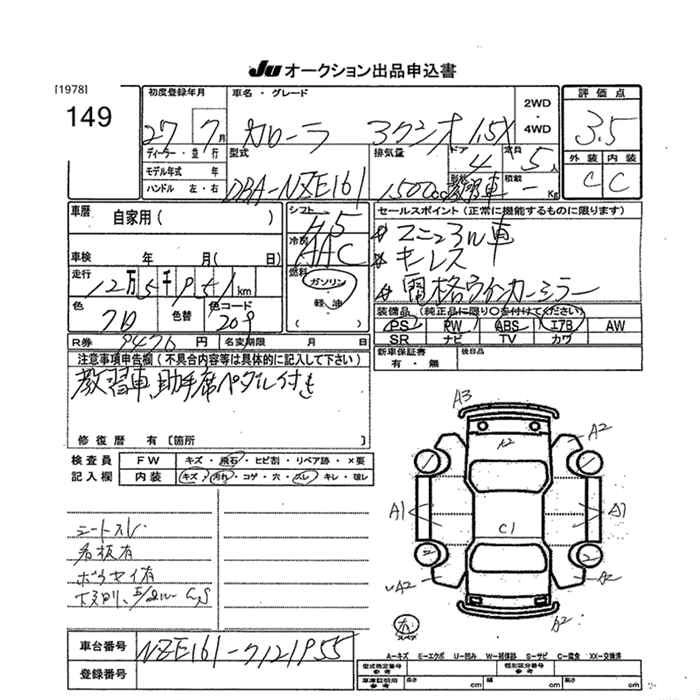 JU オークション出品申込書
[1978]
149
初度登録年月
27 7月
車名・グレード
カローラ アクシオ 1.5X
2WD
4WD
評価点
3.5
外装 内装
C C
ディーラー・並行
モデル年式 年
ハンドル 左・右
型式
DBA-NZE161
排気量
1500cc
ドア
4
定員
5人
形状
教習車
積載
- Kg
車歴
自家用( )
シフト
冷房
AAC
セールスポイント(正常に機能するものに限ります)
マニュアル車
キーレス
車検 年 月( 日)
走行
12万5千951km
燃料
ガソリン
軽油
( )
色
色替
色コード
209
装備品(純正品に限り〇を付けてください)
PS PW ABS エアB AW
SR ナビ TV カワ
R券 9476円
名変期限 月 日
新車保証書
有・無
後日品
注意事項申告欄(不具合内容等は具体的に記入して下さい)
教習車 助手席ペダル付き
修復歴 有〔箇所
検査員
記入欄
FW キズ・飛石・ヒビ割・リペア跡・×要
内装 キズ・汚れ・コゲ・穴・スレ・キレ・破レ
シートスレ
看板有
A3
A2
A2
A1
A1
C1
A2
A2
A2
スペア
車台番号 NZE161-7121955
登録番号
A-キズ E-エクボ U-凹み W-補修跡 S-サビ C-腐食 XX-交換済
型式指定番号
参考
類別区分番号
参考
車庫証明用
参考
長さ cm 幅 cm 高さ cm